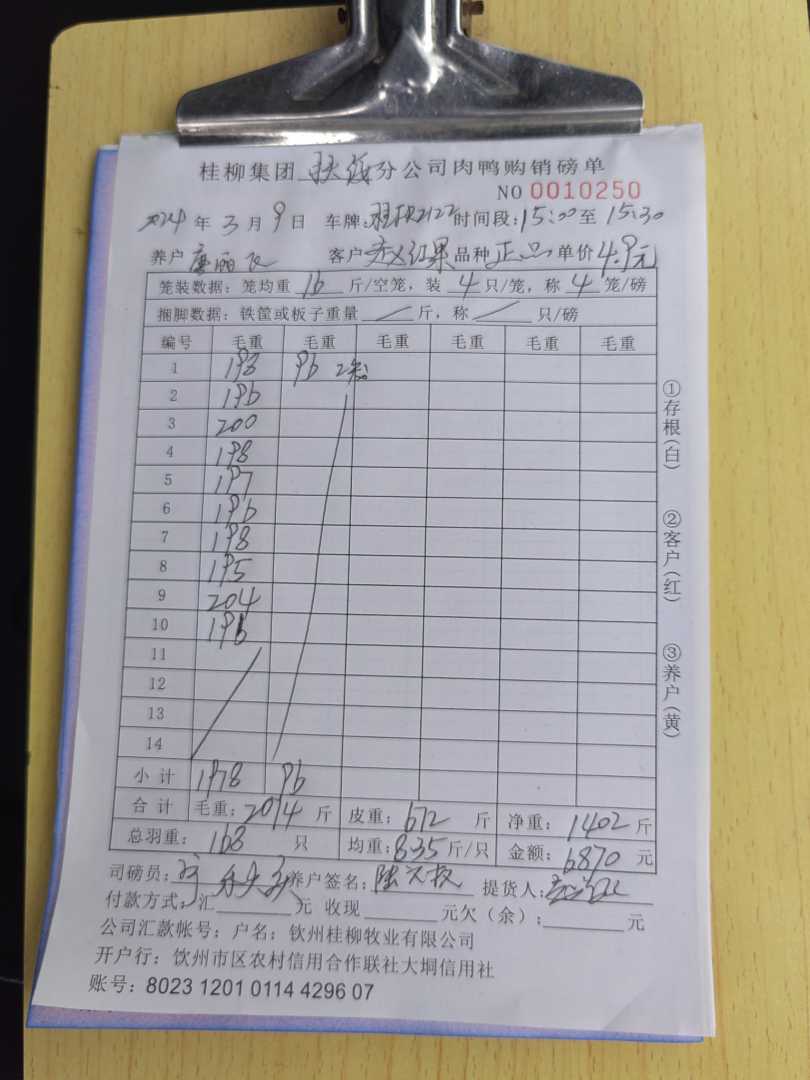 桂柳集团 扶绥 分公司肉鸭购销磅单
NO 0010250
2024 年 3 月 9 日 车牌: 时间段: 15:00 至 15:30
养户 客户 红果 品种 正品 单价 4.9元
笼装数据: 笼均重 16 斤/空笼, 装 4 只/笼, 称 4 笼/磅
捆脚数据: 铁筐或板子重量 / 斤, 称 / 只/磅
编号 毛重 毛重 毛重 毛重 毛重 毛重
1 198 96
2 196
3 200
4 198
5 197
6 196
7 198
8 195
9 204
10 196
11
12
13
14
小计 1978 96
合计 毛重: 2074 斤 皮重: 672 斤 净重: 1402 斤
总羽重: 168 只 均重: 8.35 斤/只 金额: 6870 元
司磅员: 养户签名: 提货人:
付款方式: 汇 元 收现 元欠(余): 元
公司汇款帐号: 户名: 钦州桂柳牧业有限公司
开户行: 饮州市区农村信用合作联社大垌信用社
账号: 8023 1201 0114 4296 07
①存根(白)
②客户(红)
③养户(黄)